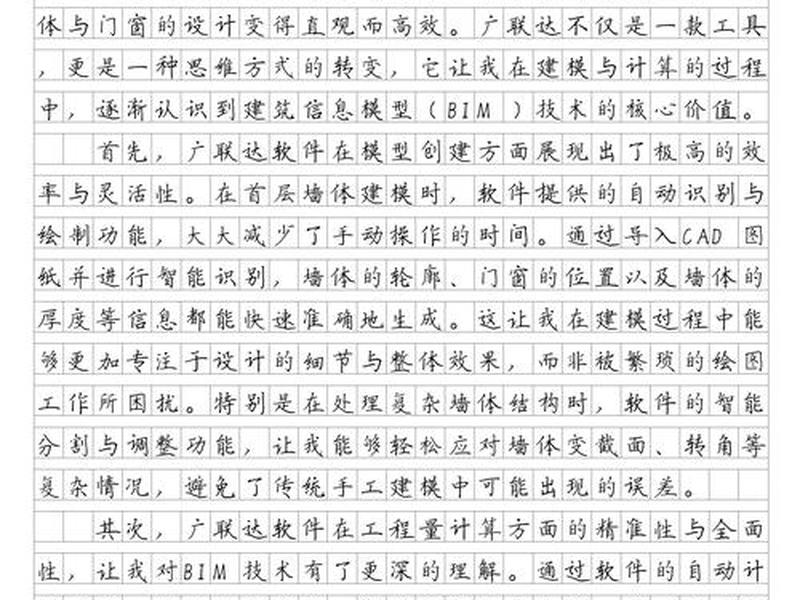 体与门窗的设计变得直观而高效。广联达不仅是一款工具
，更是一种思维方式的转变，它让我在建模与计算的过程
中，逐渐认识到建筑信息模型（BIM）技术的核心价值。
首先，广联达软件在模型创建方面展现出了极高的效
率与灵活性。在首层墙体建模时，软件提供的自动识别与
绘制功能，大大减少了手动操作的时间。通过导入CAD 图
纸并进行智能识别，墙体的轮廓、门窗的位置以及墙体的
厚度等信息都能快速准确地生成。这让我在建模过程中能
够更加专注于设计的细节与整体效果，而非被繁琐的绘图
工作所困扰。特别是在处理复杂墙体结构时，软件的智能
分割与调整功能，让我能够轻松应对墙体变截面、转角等
复杂情况，避免了传统手工建模中可能出现的误差。
其次，广联达软件在工程量计算方面的精准性与全面
性，让我对BIM 技术有了更深的理解。通过软件的自动计